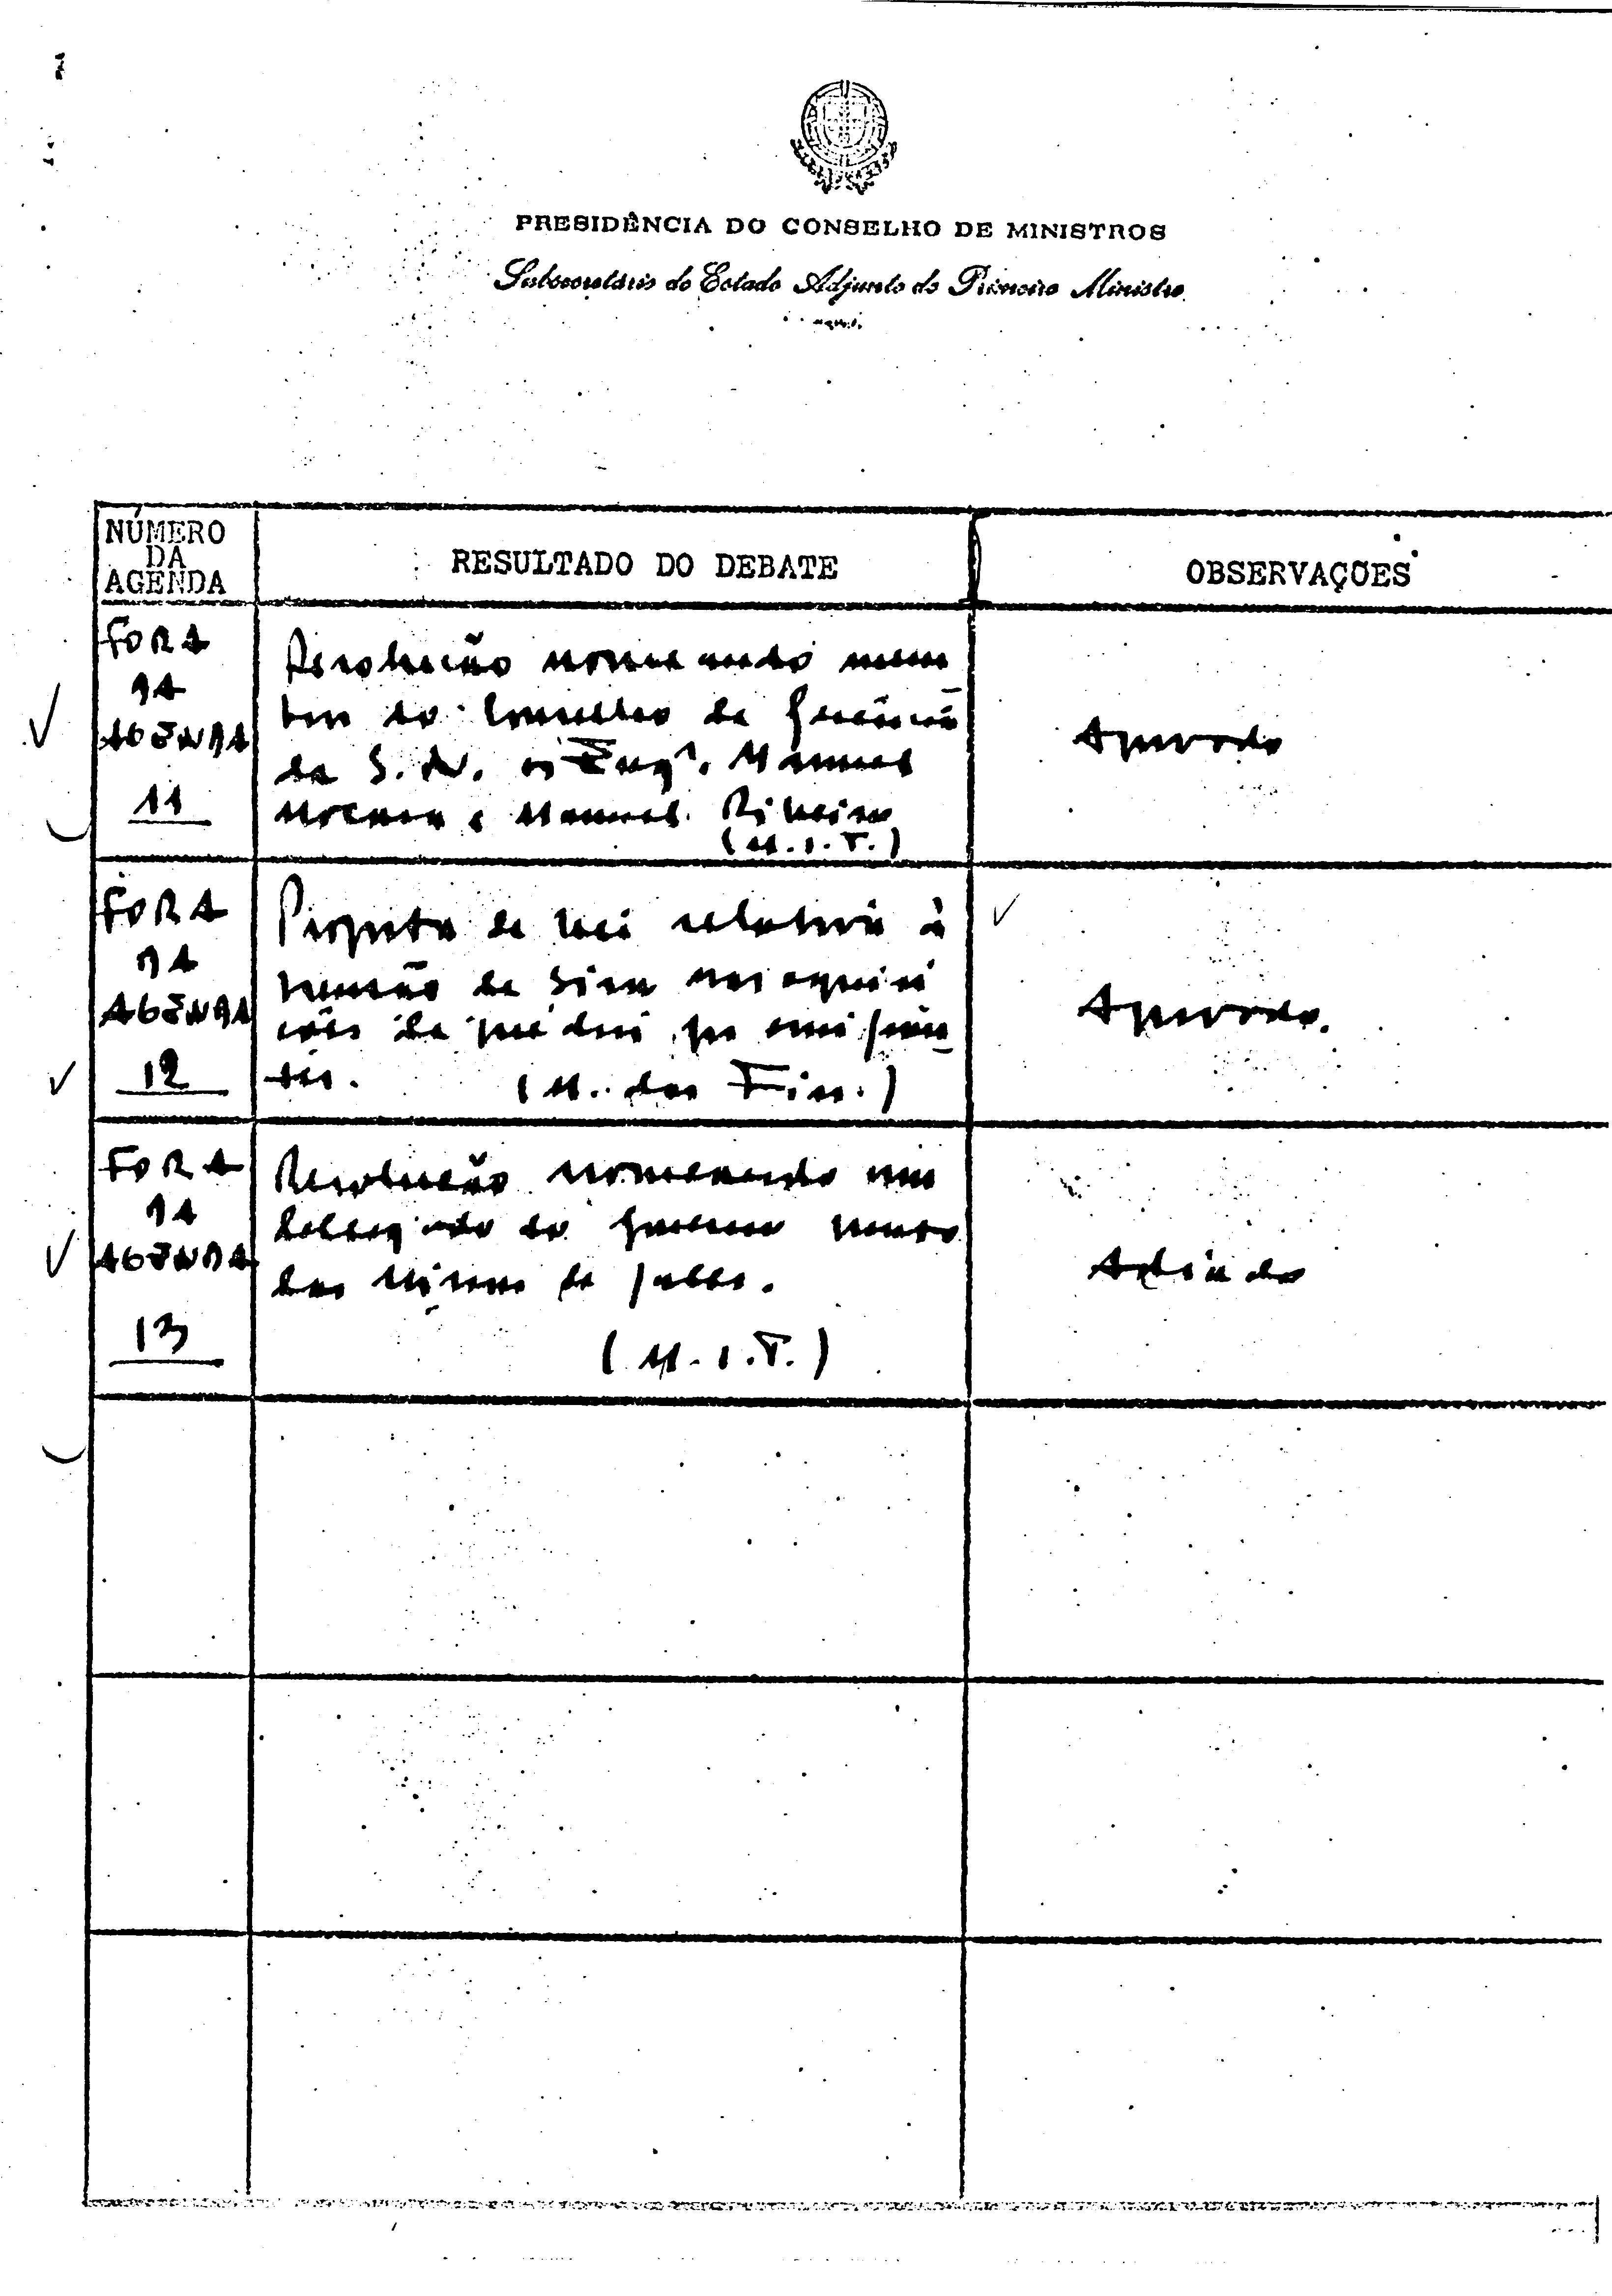 PRESIDÊNCIA DO CONSELHO DE MINISTROS
Subsecretário de Estado Adjunto do Primeiro Ministro
NÚMERO
DA
AGENDA
RESULTADO DO DEBATE
OBSERVAÇÕES
FORA
DA
AGENDA
11
Resolução nomeando mem
bros do Conselho de Gerência
da S. N. os Eng.s Manuel
e Manuel Ribeiro
(M.I.T.)
Aprovado
FORA
DA
AGENDA
12
Proposta de Lei relativa à
isenção de Sisa nas aquisi
ções de prédios por emigran
tes. (M. das Fin.)
Aprovado.
FORA
DA
AGENDA
13
Resolução nomeando um
Delegado do Governo junto
das Minas de Jales.
(M.I.T.)
Adiado